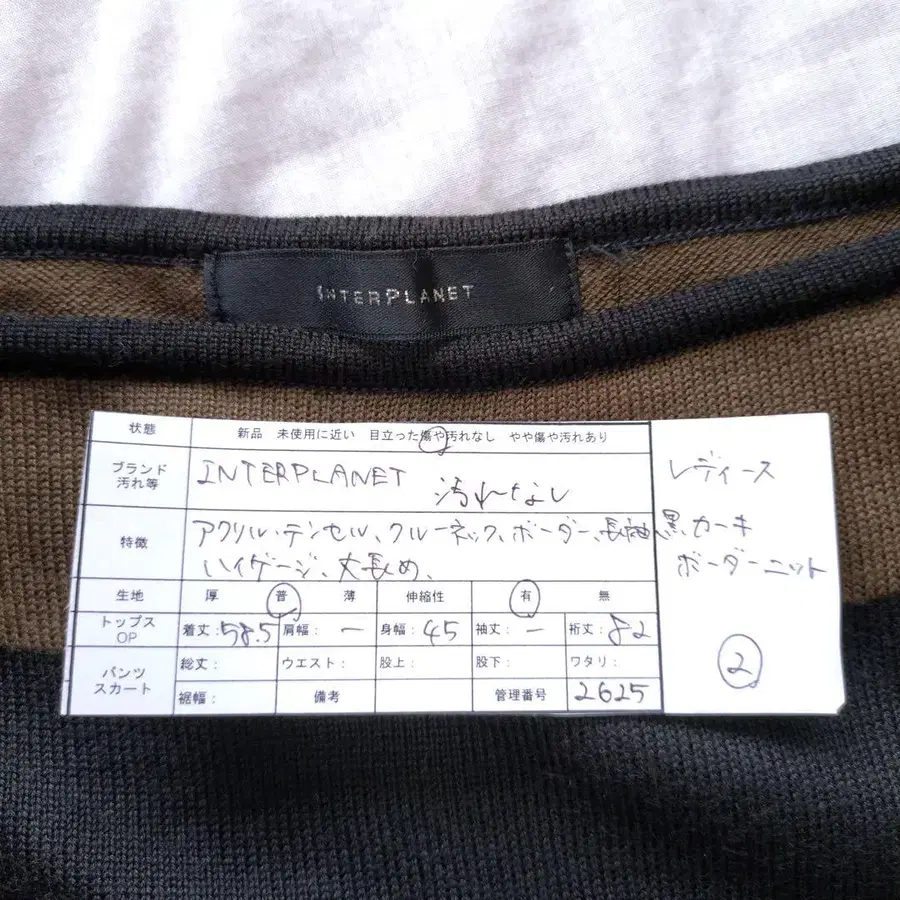 INTERPLANET
状態 新品 未使用に近い 目立った傷や汚れなし やや傷や汚れあり
ブランド 汚れ等 INTERPLANET 汚れなし
特徴 アクリル、テンセル、クルーネック、ボーダー、長袖、
ハイゲージ、丈長め、
生地 厚 普 薄 伸縮性 有 無
トップス OP 着丈:58.5 肩幅:ー 身幅:45 袖丈:ー 裄丈:82
パンツ スカート 総丈: ウエスト: 股上: 股下: ワタリ:
裾幅: 備考 管理番号 2625
レディース
黒、カーキ
ボーダーニット
②